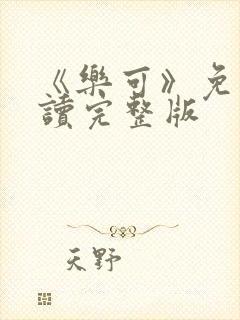 《樂可》免
讀完整版
天野